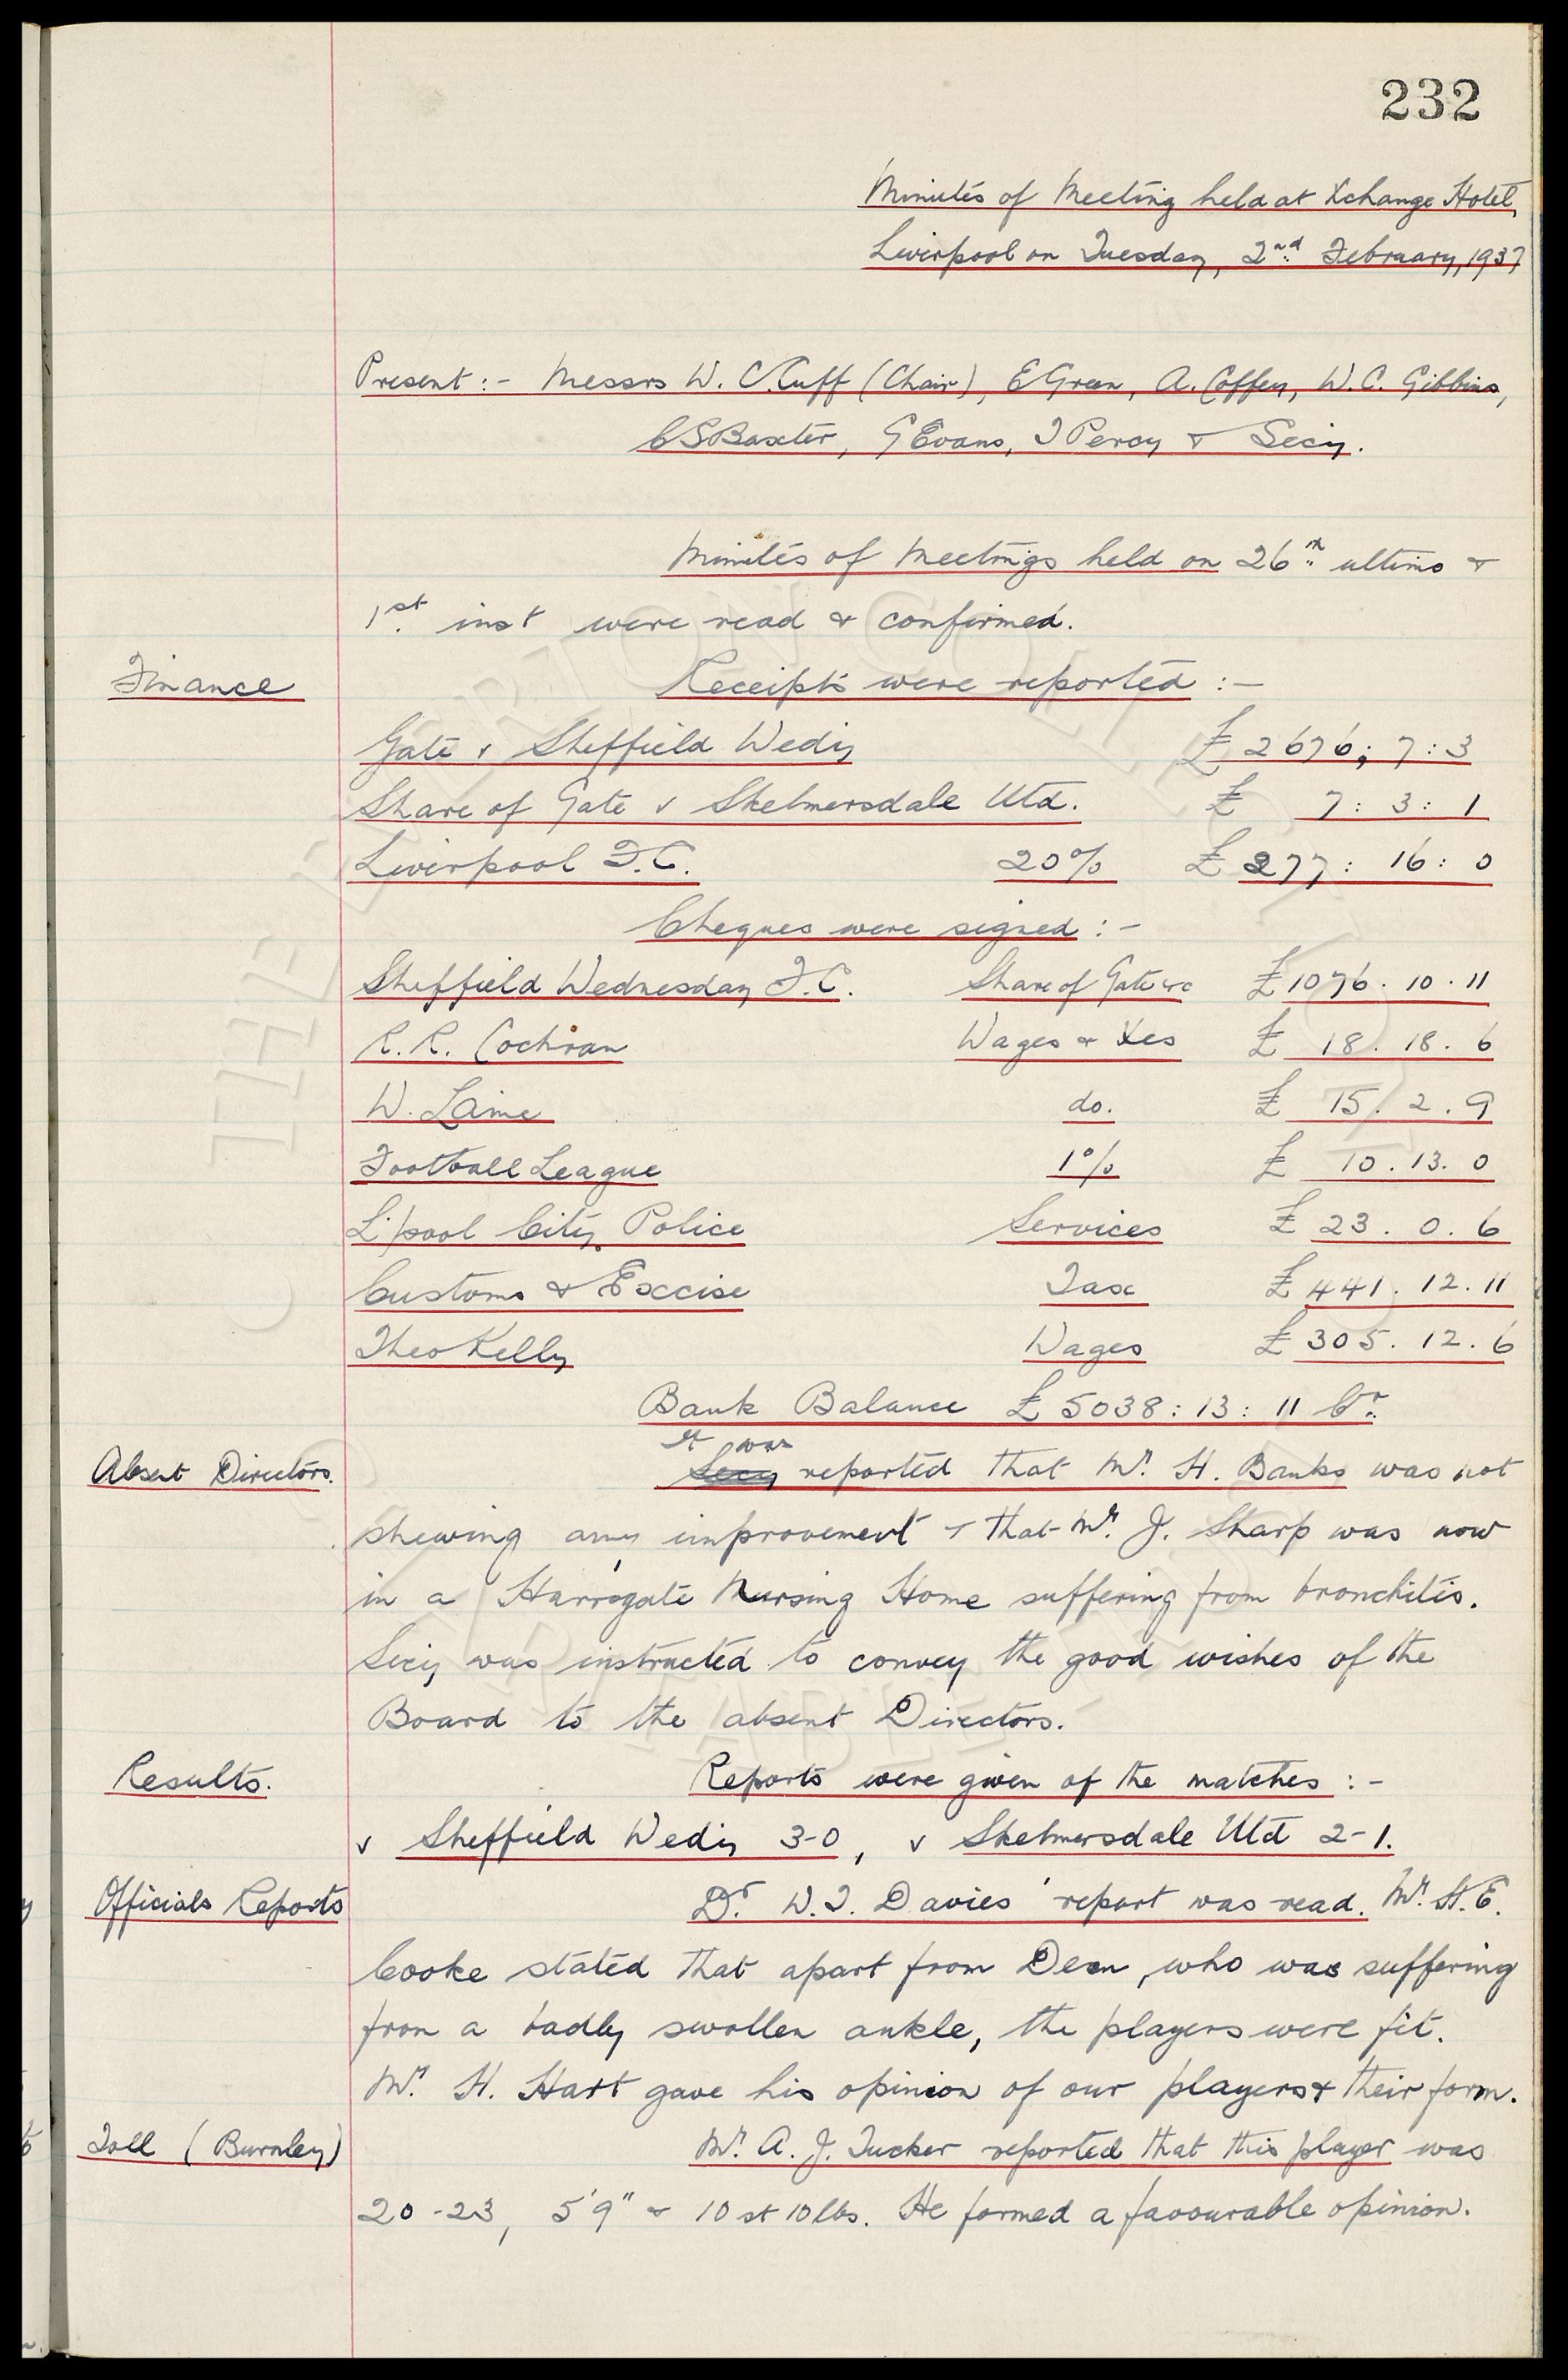 232
Minutes of Meeting held at Xchange Hotel,
Liverpool on Tuesday, 2nd February, 1937
Present :- Messrs W. C. Cuff (Chair), E Green, A. Coffey, W.C. Gibbins,
C S Baxter, G Evans, T Percy & Secy.
Minutes of Meetings held on 26th ultimo &
1st inst were read & confirmed.
Finance Receipts were reported :-
Gate v Sheffield Wedy £ 2676 : 7 : 3
Share of Gate v Skelmersdale Utd. £ 7 : 3 : 1
Liverpool F.C. 20% £ 277 : 16 : 0
Cheques were signed :-
Sheffield Wednesday F.C. Share of Gate &c £ 1076 . 10 . 11
R. R. Cochran Wages & Xes £ 18 . 18 . 6
W. Laine do. £ 15 . 2 . 9
Football League 1% £ 10 . 13 . 0
L'pool City Police Services £ 23 . 0 . 6
Customs & Excise Tax £ 441 . 12 . 11
Theo Kelly Wages £ 305 . 12 . 6
Bank Balance £ 5038 : 13 : 11 Cr.
It was
Absent Directors. Secy reported that Mr. H. Banks was not
shewing any improvement & that Mr. J. Sharp was now
in a Harrogate Nursing Home suffering from bronchitis.
Secy was instructed to convey the good wishes of the
Board to the absent Directors.
Results. Reports were given of the matches :-
v Sheffield Wedy 3-0, v Skelmersdale Utd 2-1.
Officials Reports Dr. W.T. Davies' report was read. Mr. H.E.
Cooke stated that apart from Dean, who was suffering
from a badly swollen ankle, the players were fit.
Mr. H. Hart gave his opinion of our players & their form.
Toll (Burnley) Mr. A. J. Tucker reported that this player was
20-23, 5'9" & 10 st 10 lbs. He formed a favourable opinion.